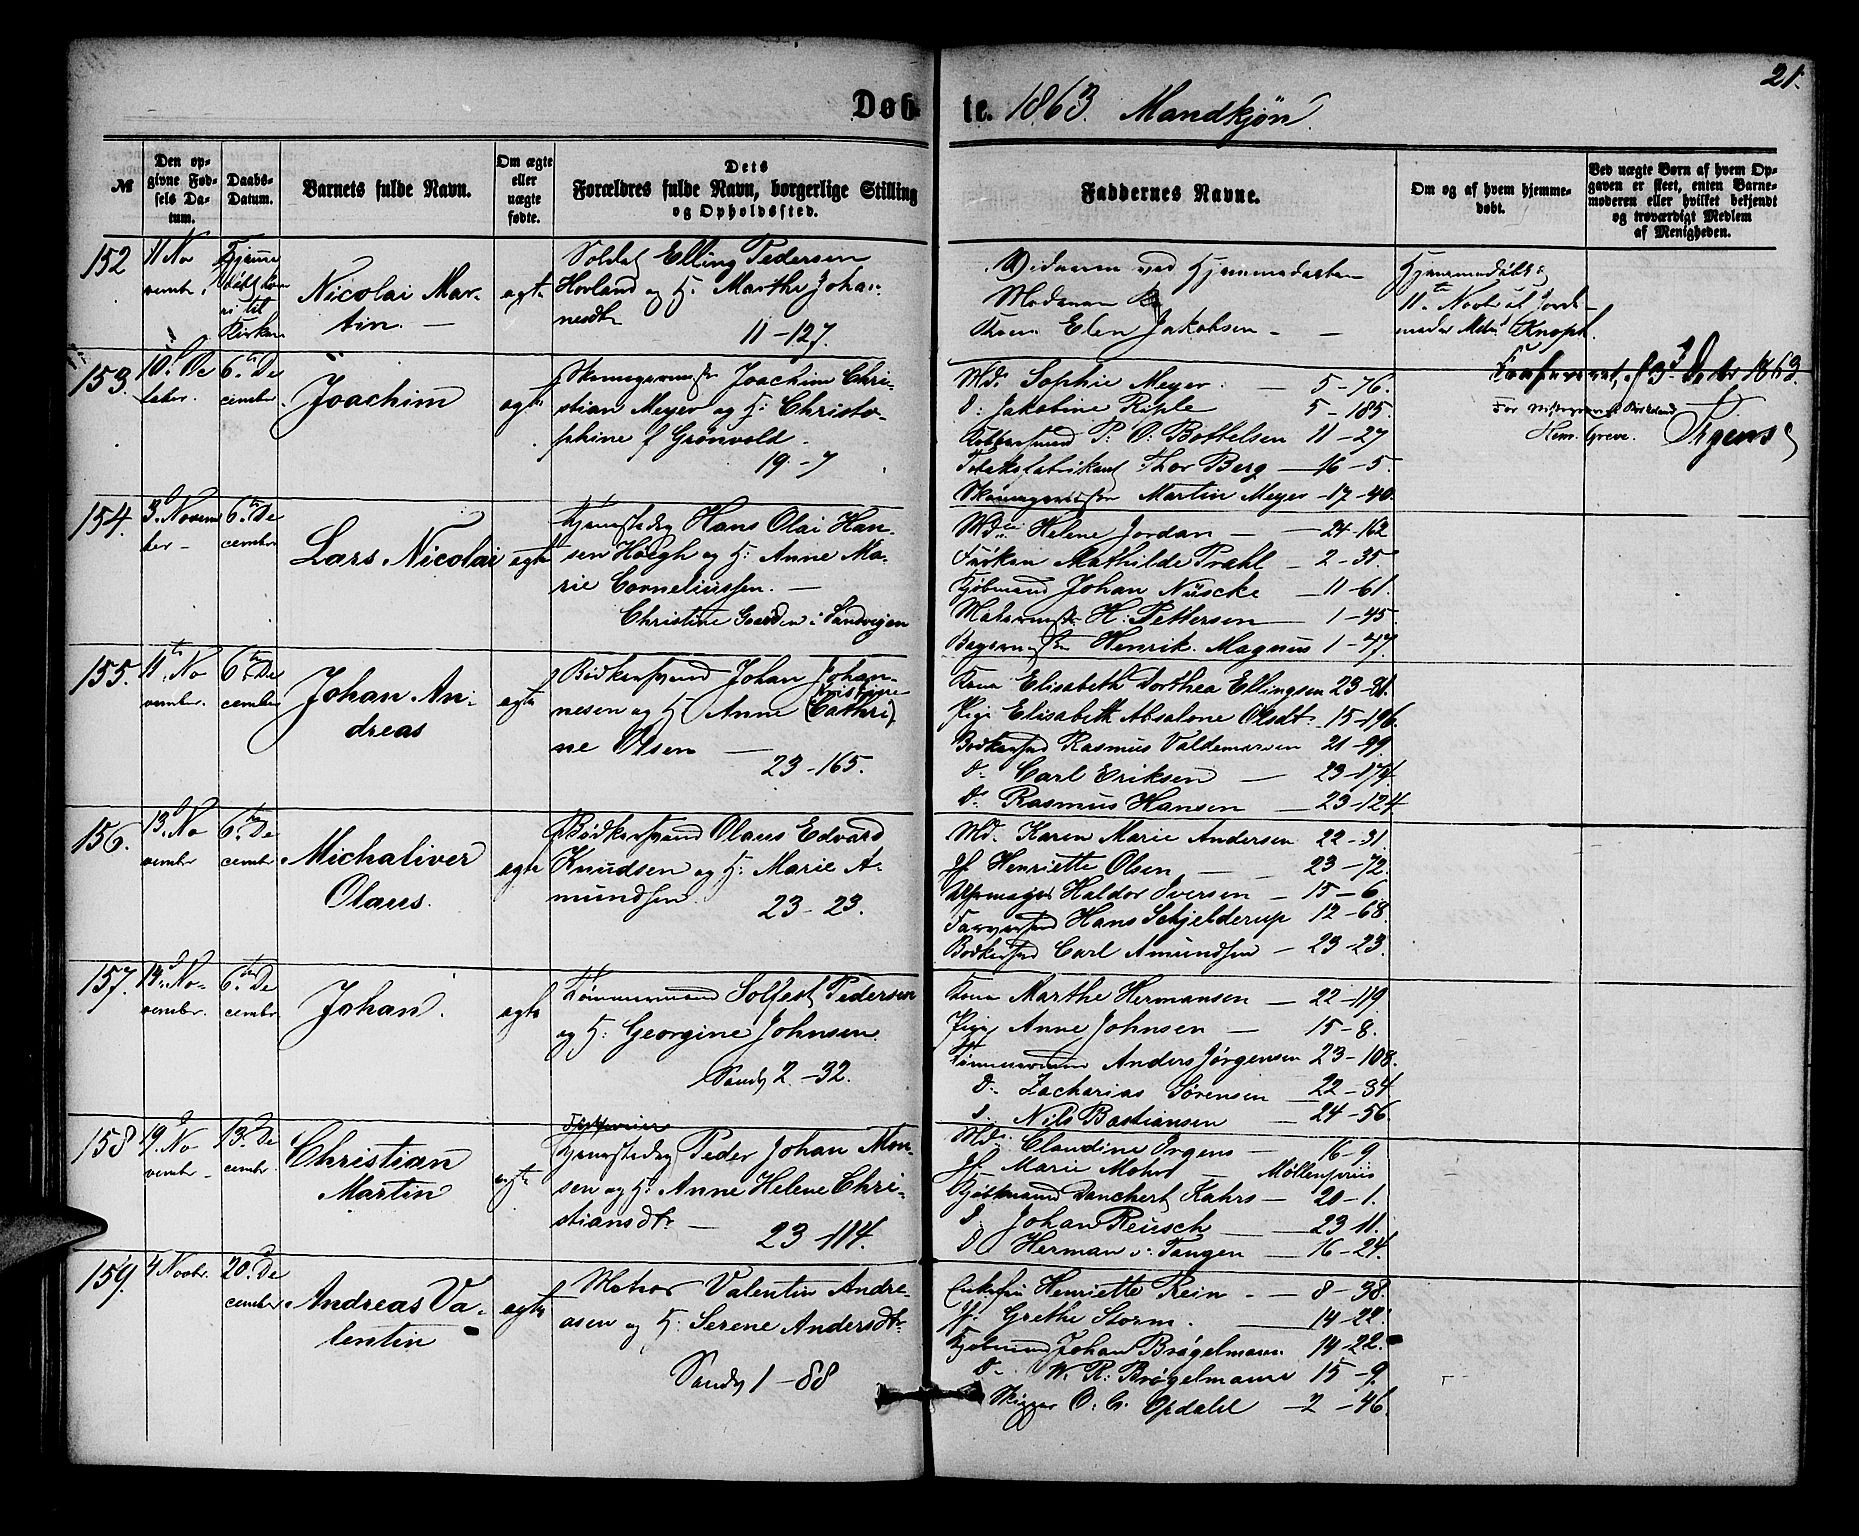 21.
Døbte. 1863. Mandkjøn
№
Den opgivne Fødsels Datum.
Daabs-Datum.
Barnets fulde Navn.
Om ægte eller uægte fødte.
Dets Forældres fulde Navn, borgerlige Stilling og Opholdssted.
Faddernes Navne.
Om og af hvem hjemmedøbt.
Ved uægte Børn af hvem Opgaven er skeet, enten Barnemoderen eller hvilket bekjendt og troværdigt Medlem af Menigheden.
152
11 No
vembr.
til
Kirken
Nicolai Mar-
tin. —
ægte
Soldat Elling Pedersen
Hovland og H: Marthe Joha-
nesdtr
11 - 127.
Vidnerne ved Hjemmedaaben
Moderen
Kone Elen Jakobsen - —
Hjemmedøbt
11te Novbr af Jorde-
moder Md. Knoph.
153.
10. Oc
tobr.
6te De
cembr.
Joachim
ægte
Skomagermstr Joachim Chri-
stian Meyer og H: Christo-
phine f Grønvold.
19 - 7
Md. Sophie Meyer. — 5 - 76.
d: Jakobine Riple 5 - 185.
P: O: Bottelsen 11 - 27
Tobaksfabrikant Thor Berg — 16 - 5.
Skomagermstr Martin Meyer - 17 - 40.
Decbr 1863.
Hem. Greve.
Irgens
154.
3. Novem
ber -
6te De
cembr
Lars Nicolai
ægte
Hans Olai Han-
sen Høegh og H: Anne Ma-
rie Corneliussen. —
Christine Gaarden i Sandvigen
Md. Helene Jordan — 24 - 162
Frøken Mathilde Prahl - 2 - 35.
Kjøbmand Johan Nüscke — 11 - 61.
H: Pettersen — 1 - 45
Bagermstr Henrik. Magnus 1 - 47.
155.
11te No
vembr.
6te De
cembr
Johan An-
dreas
ægte
Bødkersvend Johan Johan-
nesen og H: Anne (Cathri)
Kristine
ne Olsen —
23 - 165.
Kone Elisabeth Dorthea Ellingsen 23 - 81.
Pige Elisabeth Absalone Olsdt. 15 - 196.
Bødkersvd Rasmus Valdemarsen 21 - 99.
d. Carl Eriksen — 23 - 174.
d. Rasmus Hansen — 23 - 124
156.
13. No
vembr
6te De
cembr
Michaliver
Olaus.
ægte
Bødkersvend Olaus Edvard
Knudsen og H: Marie A-
mundsen.
23 - 23.
Md. Karen Marie Andersen 22 - 31.
Jf Henriette Olsen — - 23 - 72.
Uhrmager Haldor Iversen - 15 - 6.
Farversvd Hans Schjelderup 12 - 68.
Bødkersvd Carl Amundsen - 23 - 23.
157.
14. No-
vembr.
6te De
cembr
Johan.
ægte
Tømmermand Solfest Pedersen
og H: Georgine Johnsen.
Sandv 2. - 32.
Kone Marthe Hermansen — 22 - 119.
Pige Anne Johnsen — 15 - 8.
Tømmermand Anders Jørgensen 23 - 108.
d. Zacharias Sørensen — 22 - 34
d. Nils Bastiansen — 24 - 56
158
19. No
vembr -
13. De
cembr.
Christian
Martin
ægte
Peder Johan Mon-
sen og H: Anne Helene Chri-
stiansdtr —
23 - 114.
Md. Claudine Irgens — 16 - 9
Jf Marie Mohr — Møllenpriis
Kjøbmand Danckert Kahrs — 20 - 1.
d. Johan Reusch — 23 - 11.
d Herman v: Tangen — 16 - 24.
159.
4 Novbr.
20. De
cembr
Andreas Va-
lentin
ægte
Matros Valentin Andre-
asen og H: Serene Andersdtr
Sandv 1 - 88
Henriette Rein - — 8 - 38.
Jf: Grethe Storm. — 14 - 22.
Kjøbmand Johan Brøgelmann 14 - 22.
d. W. R. Brøgelmann 15 - 9.
O. C. Opdahl — 2 - 46.